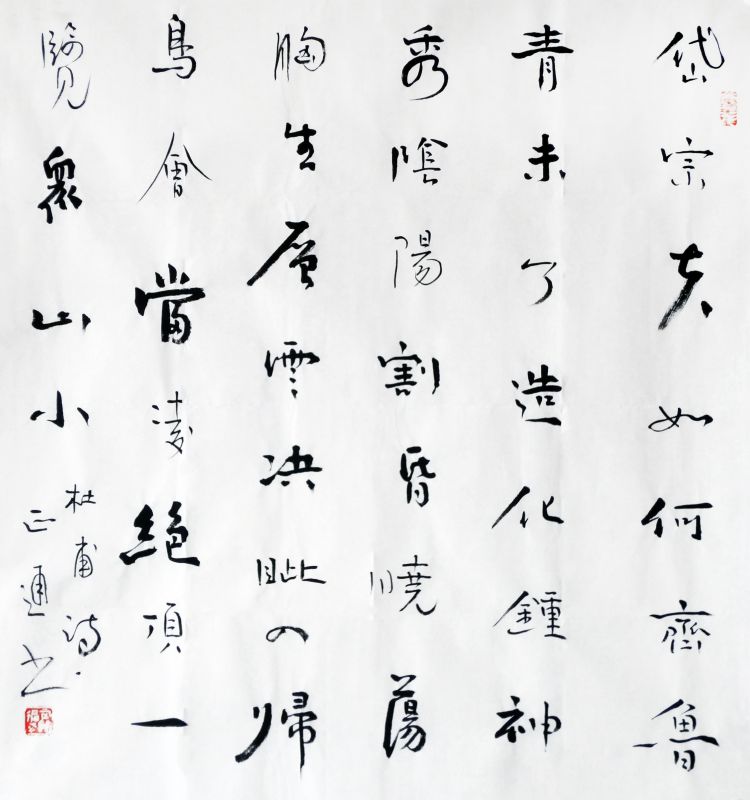 岱宗夫如何齊魯
青未了造化鍾神
秀陰陽割昏曉蕩
胸生層雲决眦入歸
鳥會當凌絕頂一
覽衆山小
杜甫詩
正通书